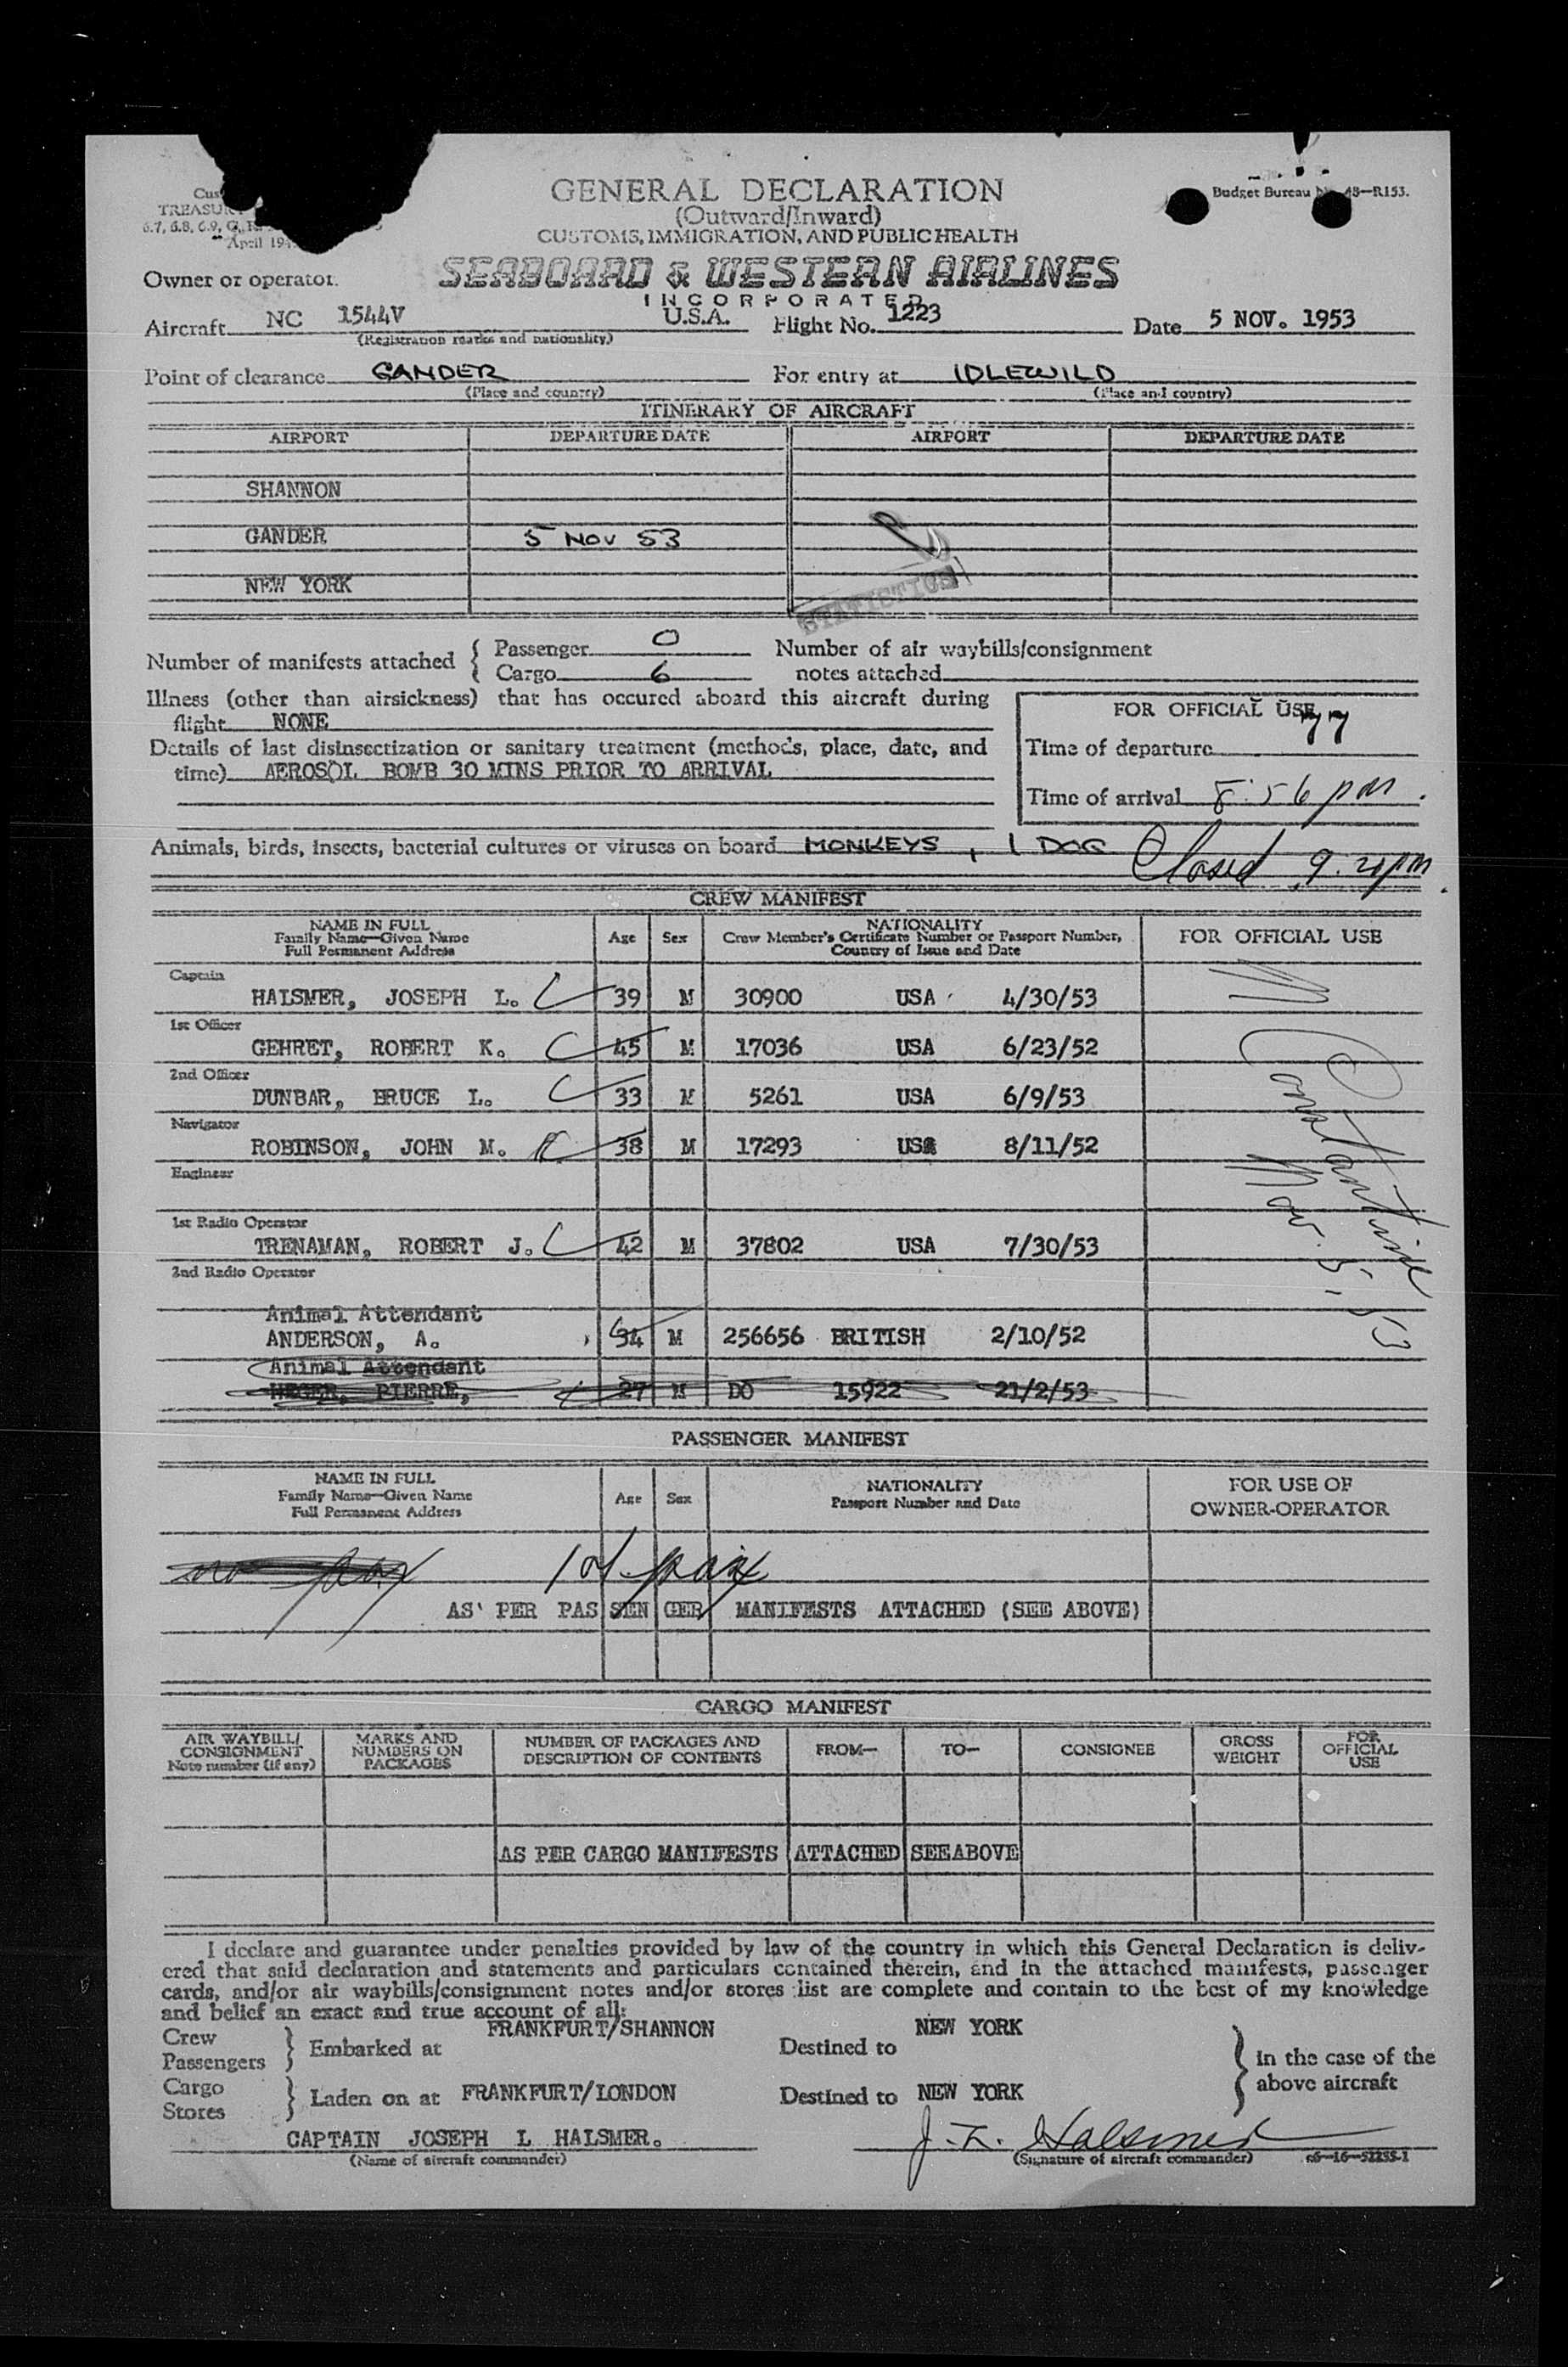 GENERAL DECLARATION
(Outward/Inward)
CUSTOMS, IMMIGRATION, AND PUBLIC HEALTH
Budget Bureau 48—R153.
TREASU
6.7, 6.8, 6.9,
April 194
Owner or operator.
SEABOARD & WESTERN AIRLINES
INCORPORATED
Aircraft NC 1544V U.S.A. Flight No. 1223 Date 5 NOV. 1953
(Registration marks and nationality)
Point of clearance GANDER For entry at IDLEWILD
(Place and country) (Place and country)
ITINERARY OF AIRCRAFT
AIRPORT DEPARTURE DATE AIRPORT DEPARTURE DATE
SHANNON
GANDER 5 NOV 53
NEW YORK
STATISTICS
Number of manifests attached { Passenger 0 Number of air waybills/consignment
Cargo 6 notes attached
Illness (other than airsickness) that has occured aboard this aircraft during
flight NONE
Details of last disinsectization or sanitary treatment (methods, place, date, and
time) AEROSOL BOMB 30 MINS PRIOR TO ARRIVAL
FOR OFFICIAL USE
77
Time of departure
Time of arrival 8:56 pm.
Animals, birds, insects, bacterial cultures or viruses on board MONKEYS, 1 DOG
Closed 9.21pm.
CREW MANIFEST
NAME IN FULL
Family Name—Given Name
Full Permanent Address
Age Sex
NATIONALITY
Crew Member's Certificate Number or Passport Number,
Country of Issue and Date
FOR OFFICIAL USE
Captain
HALSMER, JOSEPH L. 39 M 30900 USA 4/30/53
1st Officer
GEHRET, ROBERT K. 45 M 17036 USA 6/23/52
2nd Officer
DUNBAR, BRUCE L. 33 M 5261 USA 6/9/53
Navigator
ROBINSON, JOHN M. 38 M 17293 USA 8/11/52
Engineer
1st Radio Operator
TRENAMAN, ROBERT J. 42 M 37802 USA 7/30/53
2nd Radio Operator
Animal Attendant
ANDERSON, A. 34 M 256656 BRITISH 2/10/52
Animal Attendant
HEGER, PIERRE, 27 M DO 15922 21/2/53
Nov. 5, 53
PASSENGER MANIFEST
NAME IN FULL
Family Name—Given Name
Full Permanent Address
Age Sex
NATIONALITY
Passport Number and Date
FOR USE OF
OWNER-OPERATOR
no pax
AS PER PASSENGER MANIFESTS ATTACHED (SEE ABOVE)
CARGO MANIFEST
AIR WAYBILL/
CONSIGNMENT
Note number (if any)
MARKS AND
NUMBERS ON
PACKAGES
NUMBER OF PACKAGES AND
DESCRIPTION OF CONTENTS
FROM— TO— CONSIGNEE
GROSS
WEIGHT
FOR
OFFICIAL
USE
AS PER CARGO MANIFESTS ATTACHED SEE ABOVE
I declare and guarantee under penalties provided by law of the country in which this General Declaration is deliv-
ered that said declaration and statements and particulars contained therein, and in the attached manifests, passenger
cards, and/or air waybills/consignment notes and/or stores list are complete and contain to the best of my knowledge
and belief an exact and true account of all:
Crew
Passengers } Embarked at FRANKFURT/SHANNON Destined to NEW YORK
Cargo
Stores } Laden on at FRANKFURT/LONDON Destined to NEW YORK
} In the case of the
above aircraft
CAPTAIN JOSEPH L HALSMER.
(Name of aircraft commander)
J. L. Halsmer
(Signature of aircraft commander)